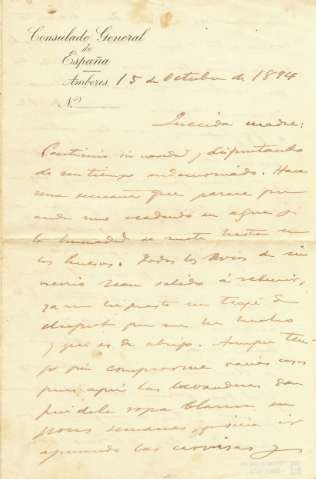 Consulado General
de
España
Amberes 15 de Octubre de 1894
N.º
Querida madre:
Continúo sin novedad y disfrutando
de un tiempo endemoniado. Hace
una semana que parece que
ando uno nadando en agua y
la humedad se mete hasta en
los huesos. Todos los
han salido á relucir,
ya me he puesto un traje de
y que es de abrigo. Aunque ten-
go que comprarme varias cosas
pues aquí las lavanderas dan
fin de la ropa blanca en
pocas semanas
las camisas y